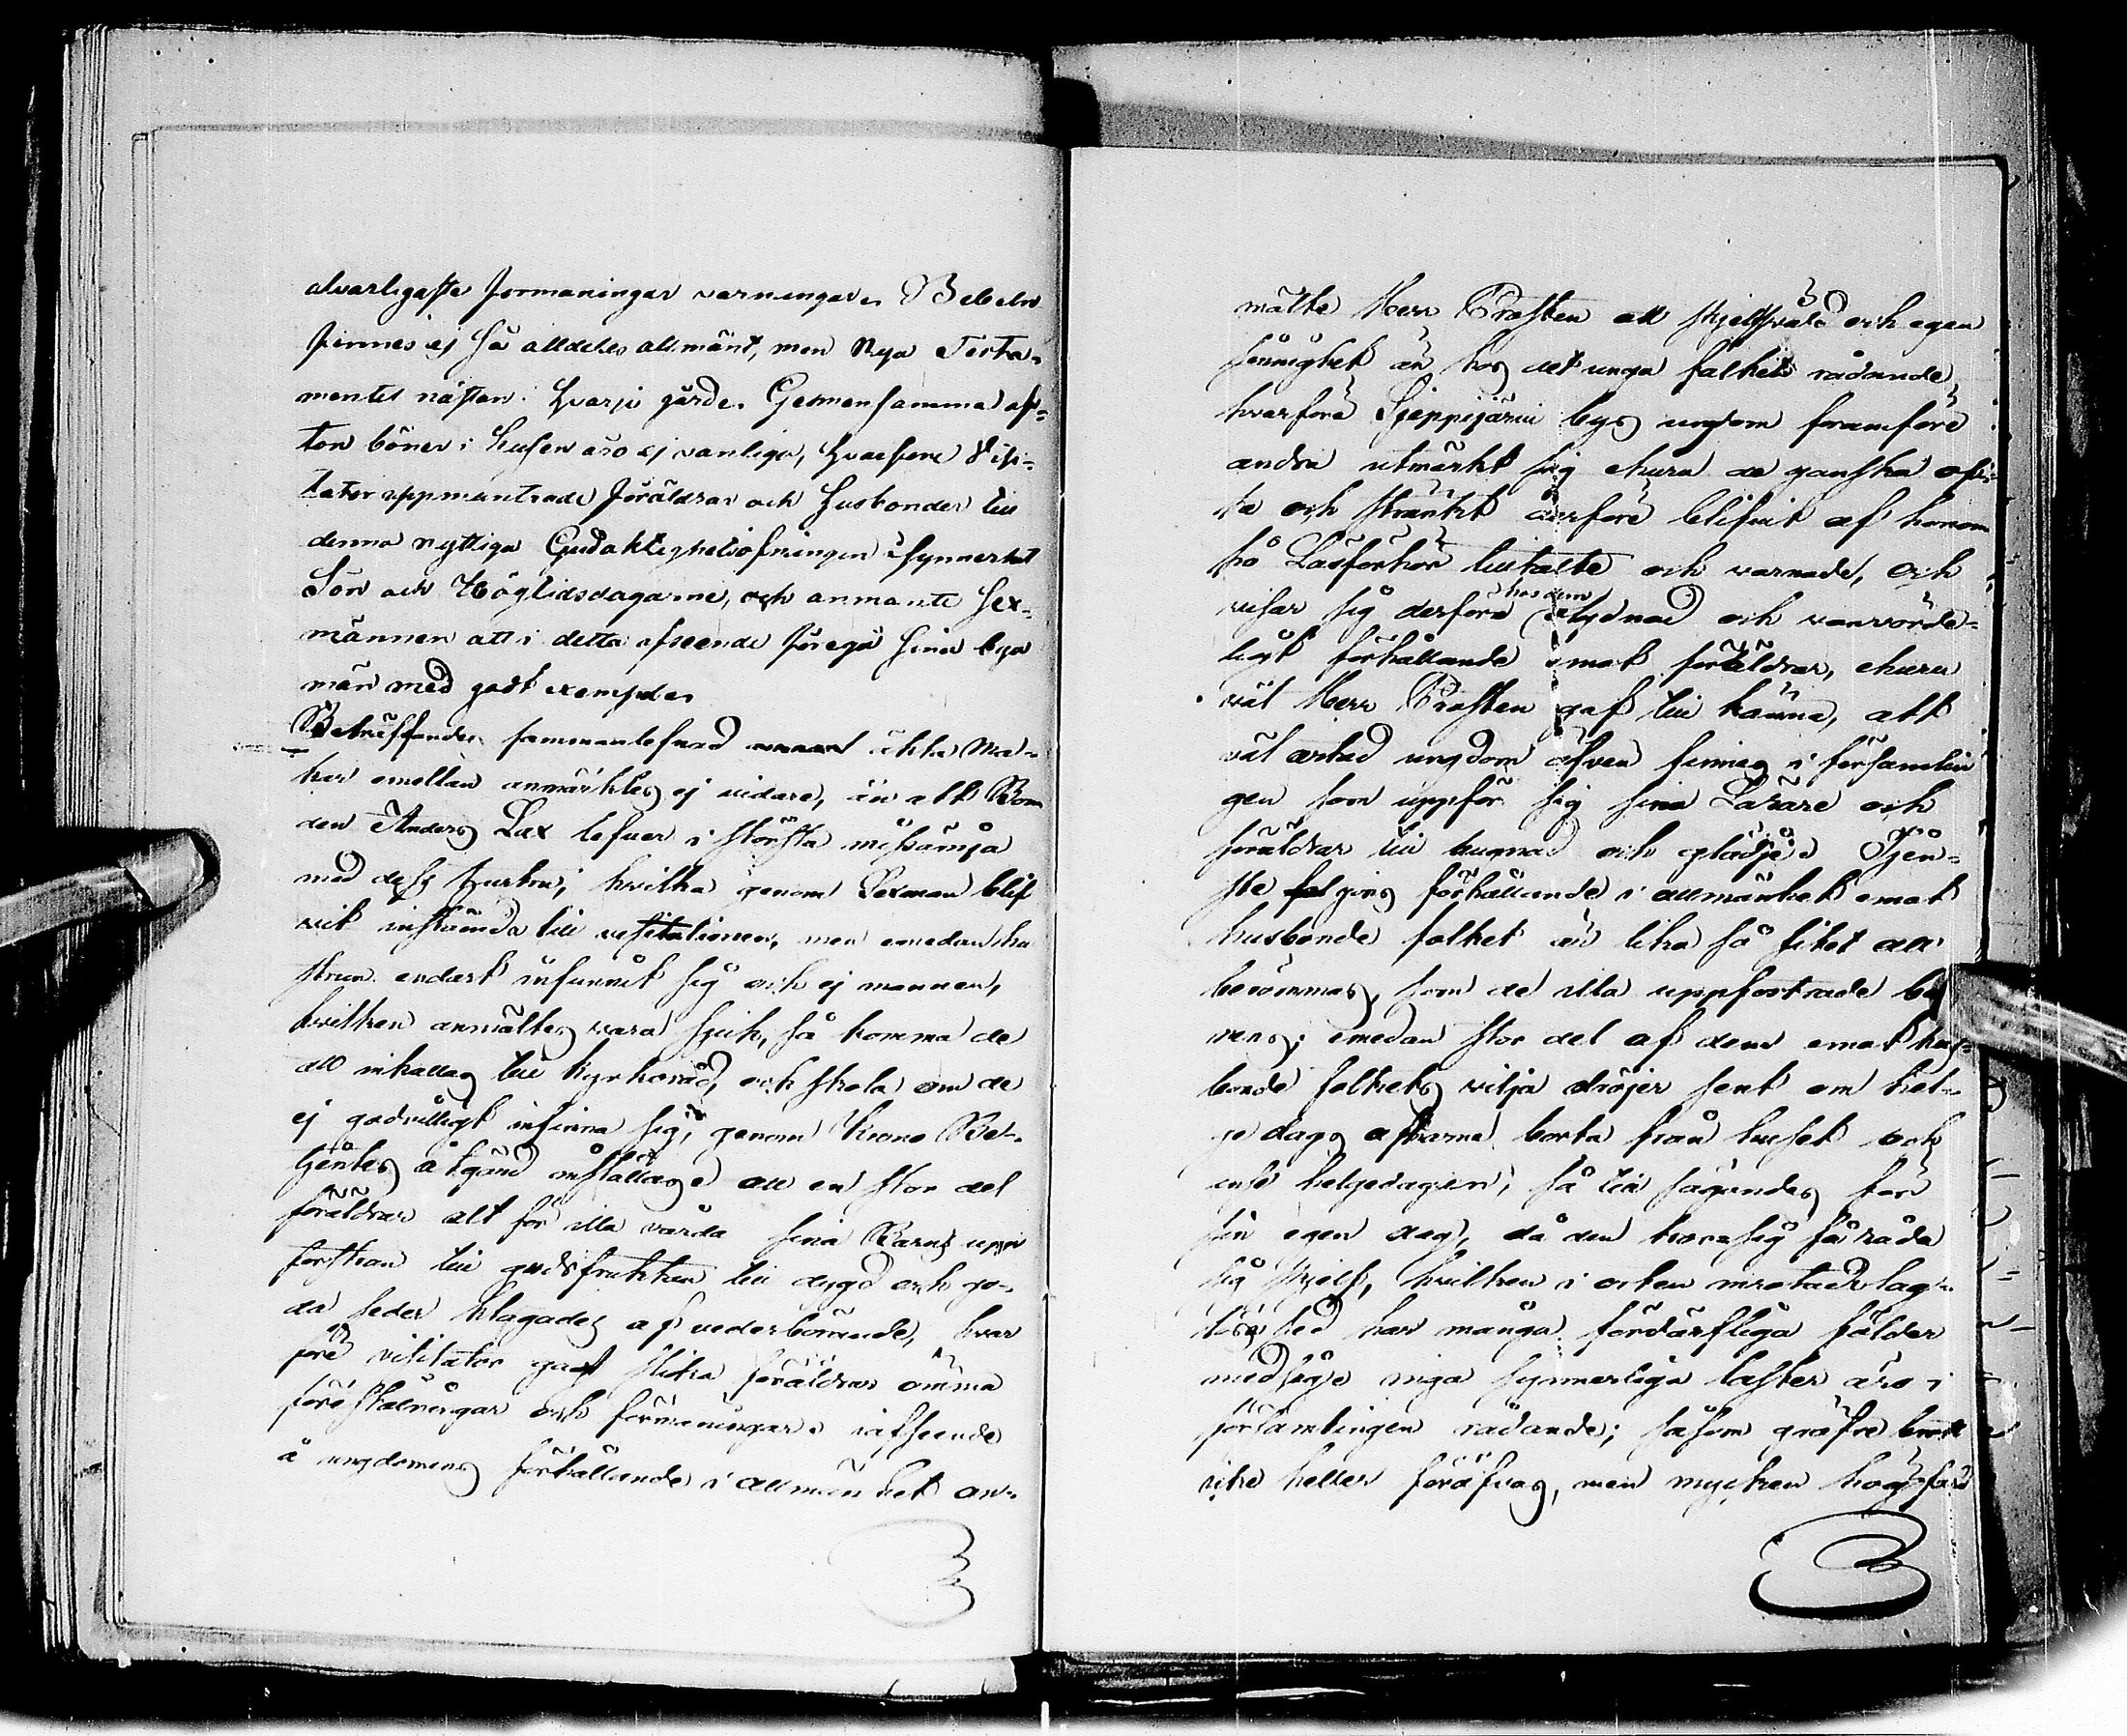 alvarligaste förmaningar varningar. Bibeln
finnes ej så alldeles allmänt, men Nya Testa-
mentet nästan i hvarje gård. Gemensamma af-
ton böner i husen äro ej vanliga, hvarföre Visi-
tator uppmuntrade föräldrar och husbönder till
denna nyttiga Gudaktighetsöfningen isynnerhet
Sön och Högtidsdagarne, och anmante Sex-
männen att i detta afseende föregå sina bya
män med godt exempel.
Beträffande sammanlefnad äkta Ma-
kar emellan anmärktes ej vidare, än att Bon
den Anders Lax lefver i största missämja
med dess hustru; hvilka genom Sexman blif
vit instämda till visitationen, men emedan hu
strun endast infunnit sig och ej mannen,
hvilken anmältes vara sjuk, så komma de
att inkallas till kyrkoråd, och skola om de
ej godvilligt infinna sig, genom Krono Be-
tjentes åtgärd inställas. Att en stor del
föräldrar allt för illa vårda sina Barns upp
fostran till gudsfruktan till dygd och go-
da seder klagades af vederbörande, hvar
före visitator gaf slika föräldrar ömma
föreställningar och förmaningar. i afseende
å ungdomens förhållande i allmänhet an-
mälte Herr Prosten att sjelfsvåld och egen
sinnighet är hos det unga folket rådande,
hvarföre Sieppijärvi bys ungdom framföre
andra utmärkt sig ehuru de ganska of-
ta och strängt derföre blifvit af honom
på Läsförhör tilltalte och varnade, och
visar sig derföre hos dem olydnad och vanvörd-
ligt förhållande emot föräldrar, ehuru
väl Herr Prosten gaf till känna, att
väl artad ungdom äfven finnes i församlin
gen som uppför sig sina Lärare och
föräldrar till hugnad och glädje. Tjen-
ste hjons förhållande i allmänhet emot
husbonde folket är lika så litet att
berömmas, som de illa uppfostrade bar
nens; emedan stor del af dem emot hus-
bonde folkets vilja dröjer sent om hel-
ge dags aftnarne borta från huset och
anse helgedagen, så till sägandes för
sin egen dag, då den tror sig få råda
sig sjelf, hvilken i orten inrotad lag-
lösa sed har många förderfliga följder
med sig. inga synnerliga laster äro i
församlingen rådande; såsom gröfre brott
icke heller föröfvas, men mycken högfärd